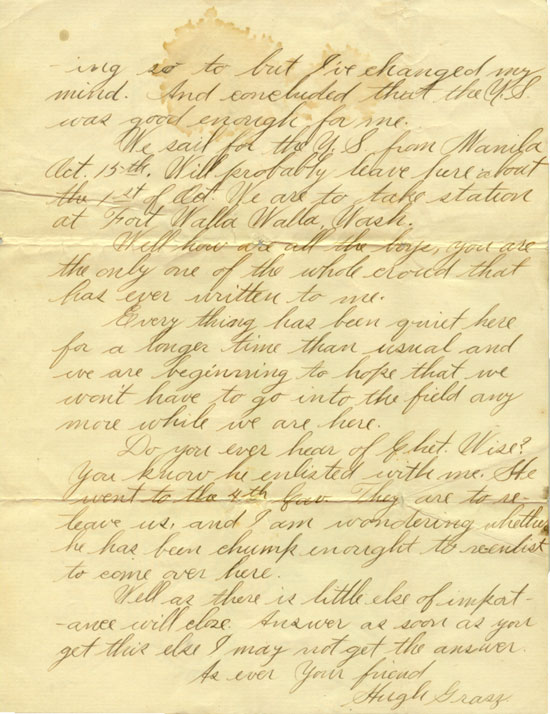 -ing so to but I've changed my
mind. And concluded that the U.S.
was good enough for me.
We sail for the U.S. from Manila
Oct. 15th. Will probably leave here about
the 1st of Oct. We are to take station
at Fort Walla Walla, Wash.
Well how are all the boys, you are
the only one of the whole crowd that
has ever written to me.
Every thing has been quiet here
for a longer time than usual and
we are beginning to hope that we
won't have to go into the field any
more while we are here.
Do you ever hear of Chet. Wise?
You know he enlisted with me. He
went to the 4th Cav. They are to re-
leave us, and I am wondering whether
he has been chump enought to reenlist
to come over here.
Well as there is little else of import-
-ance will close. Answer as soon as you
get this else I may not get the answer.
As ever Your friend
Hugh